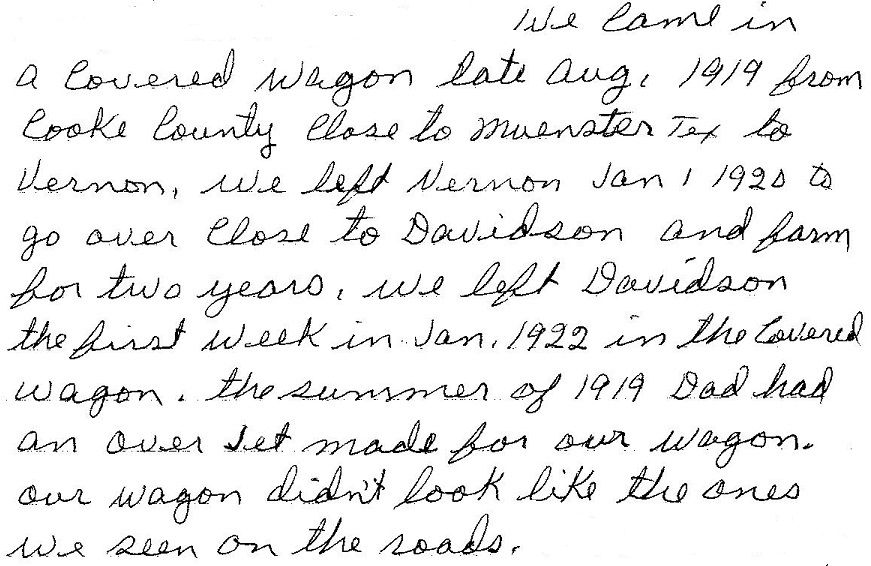 We came in
a Covered Wagon late Aug, 1919 from
Cooke County Close to Muenster Tex to
Vernon, we left Vernon Jan 1 1920 to
go over Close to Davidson and farm
for two years, we left Davidson
the first week in Jan. 1922 in the Covered
wagon. the summer of 1919 Dad had
an over Jet made for our wagon.
our wagon didn't look like the ones
we seen on the roads.